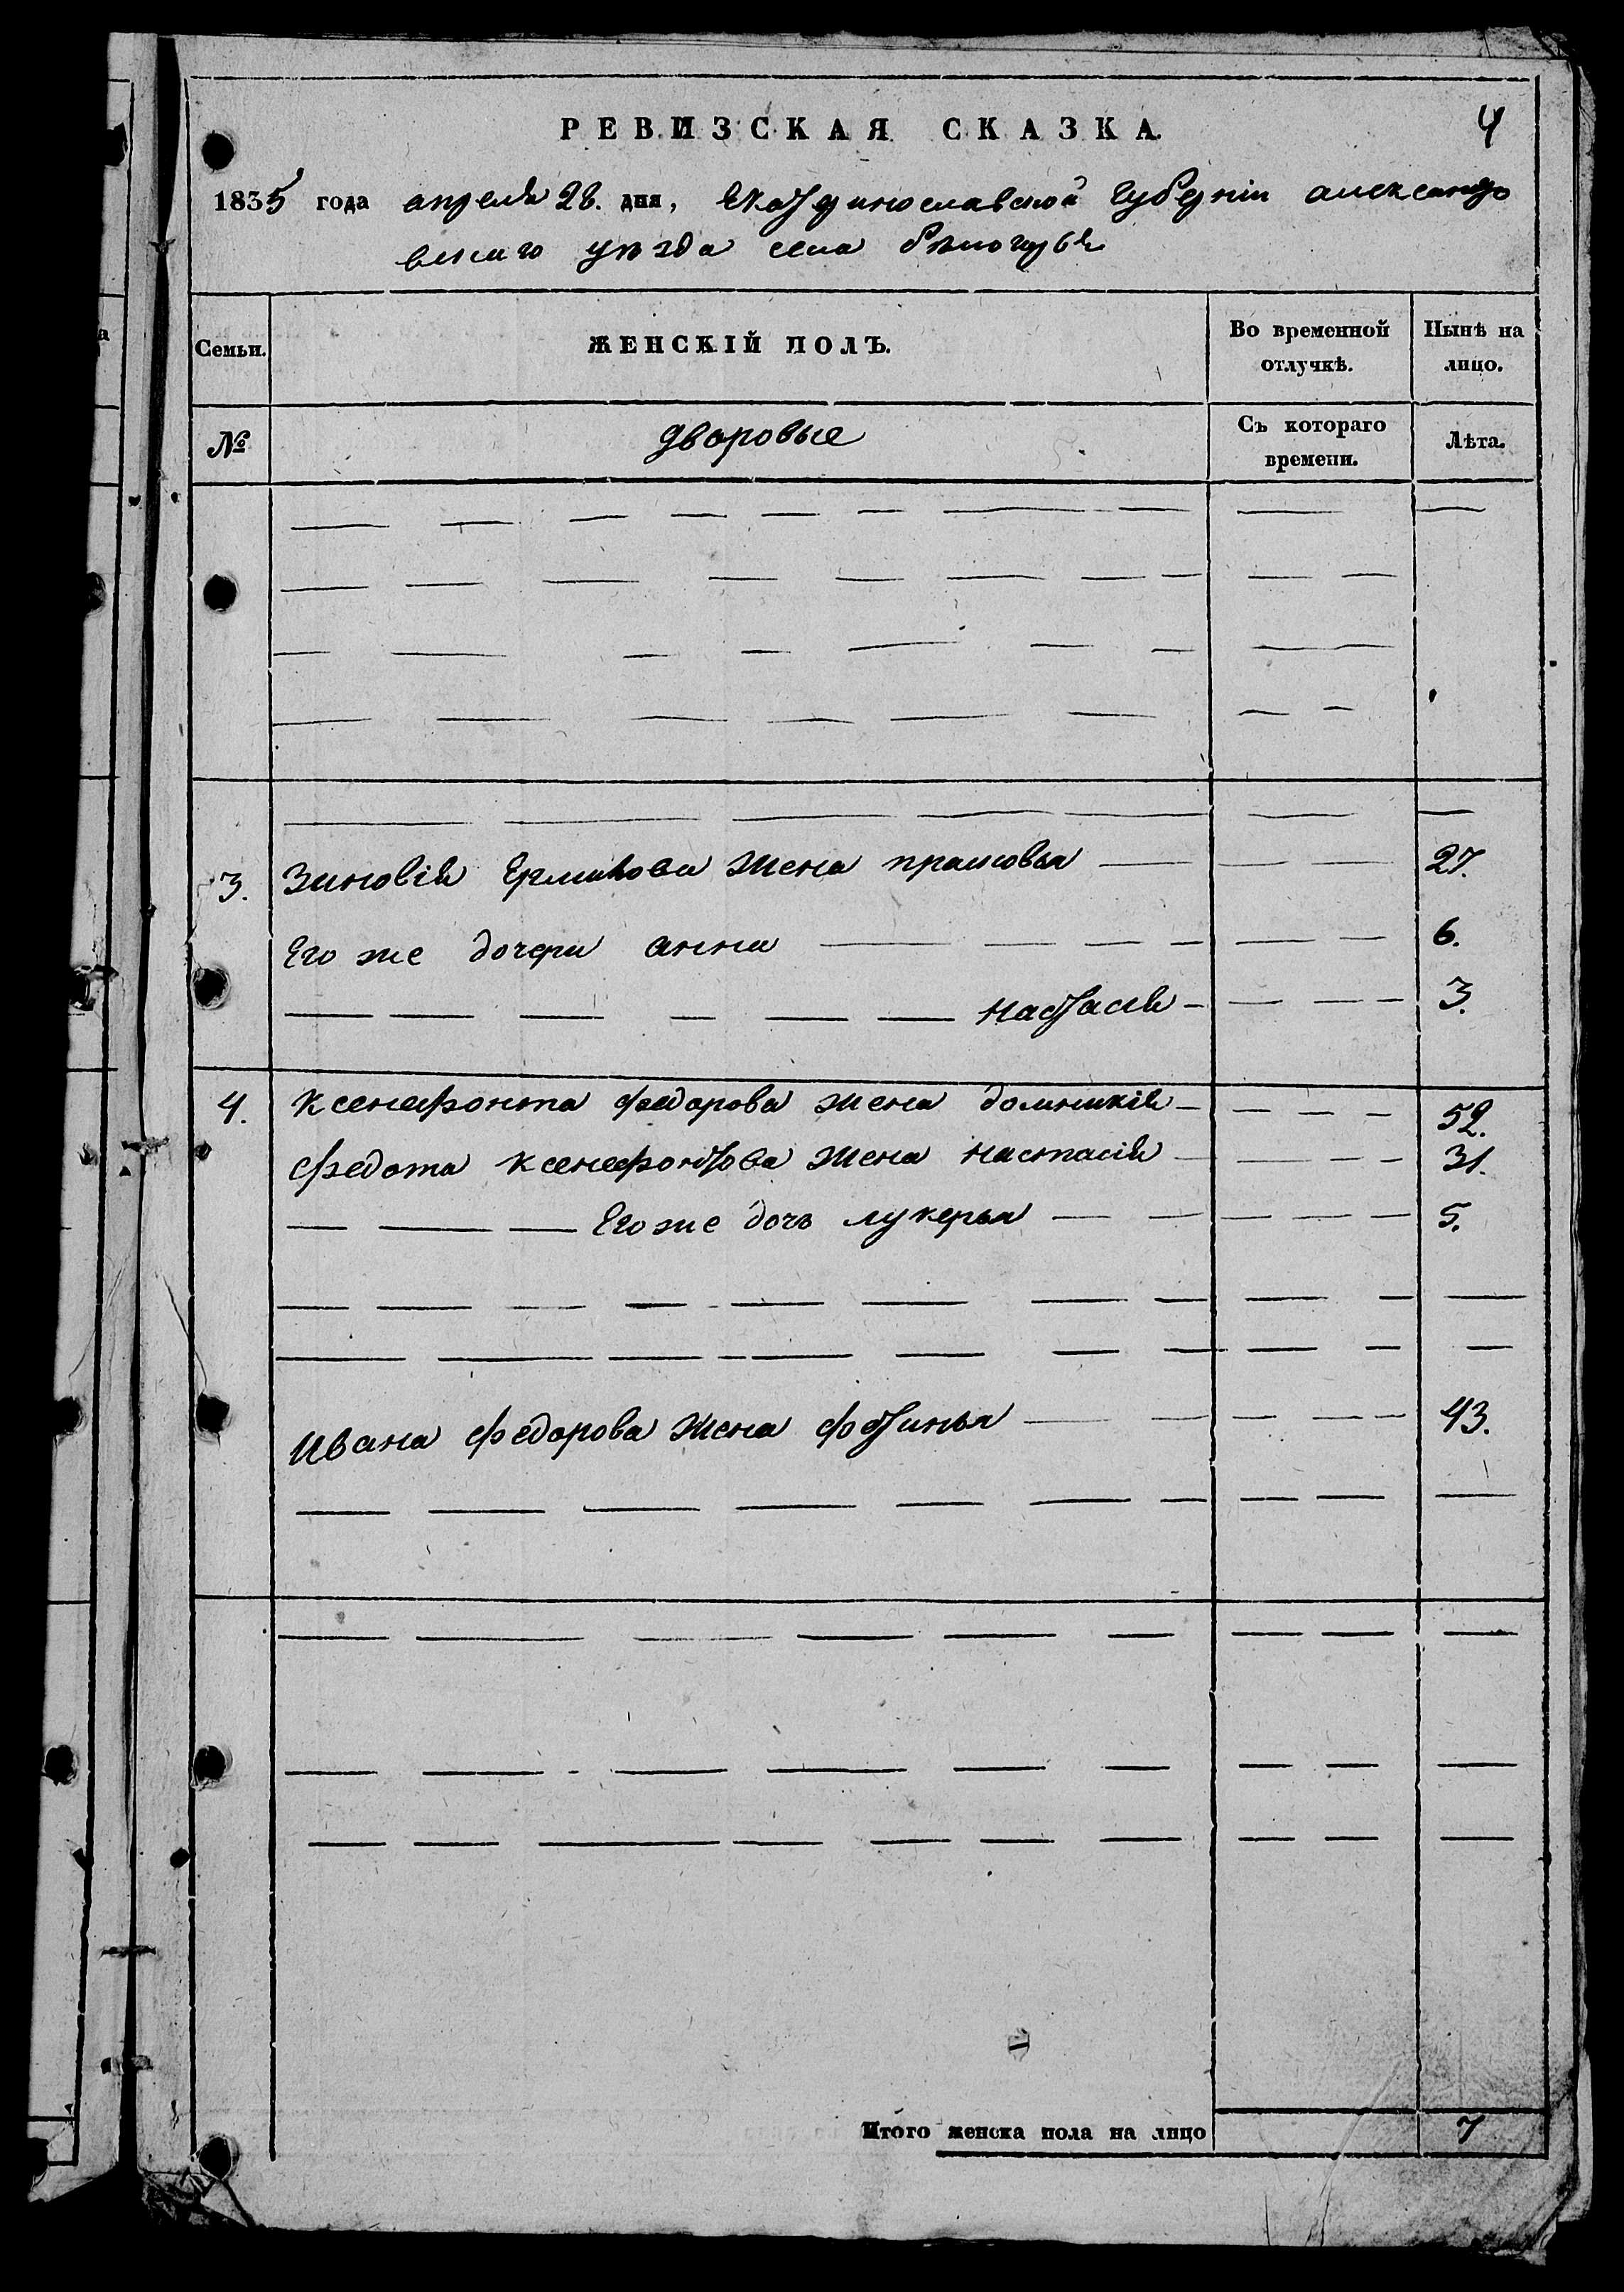 РЕВИЗСКАЯ СКАЗКА.
4
1835 года апреля 28. дня, Екатеринославской губерніи александро
вскаго уѣзда села
Семьи.
ЖЕНСКІЙ ПОЛЪ.
Во временной отлучкѣ.
Нынѣ на лицо.
№
дворовые
Съ котораго времени.
Лѣта.
3. Зиновія Ермилова жена прасковья 27.
Его же дочери анна 6.
настасія 3.
4. ксенефонта федорова жена домникія 52.
федота ксенефонтова жена настасія 31.
Его же дочь лукерья 5.
Ивана федорова жена фотинья 43.
Итого женска пола на лицо 7